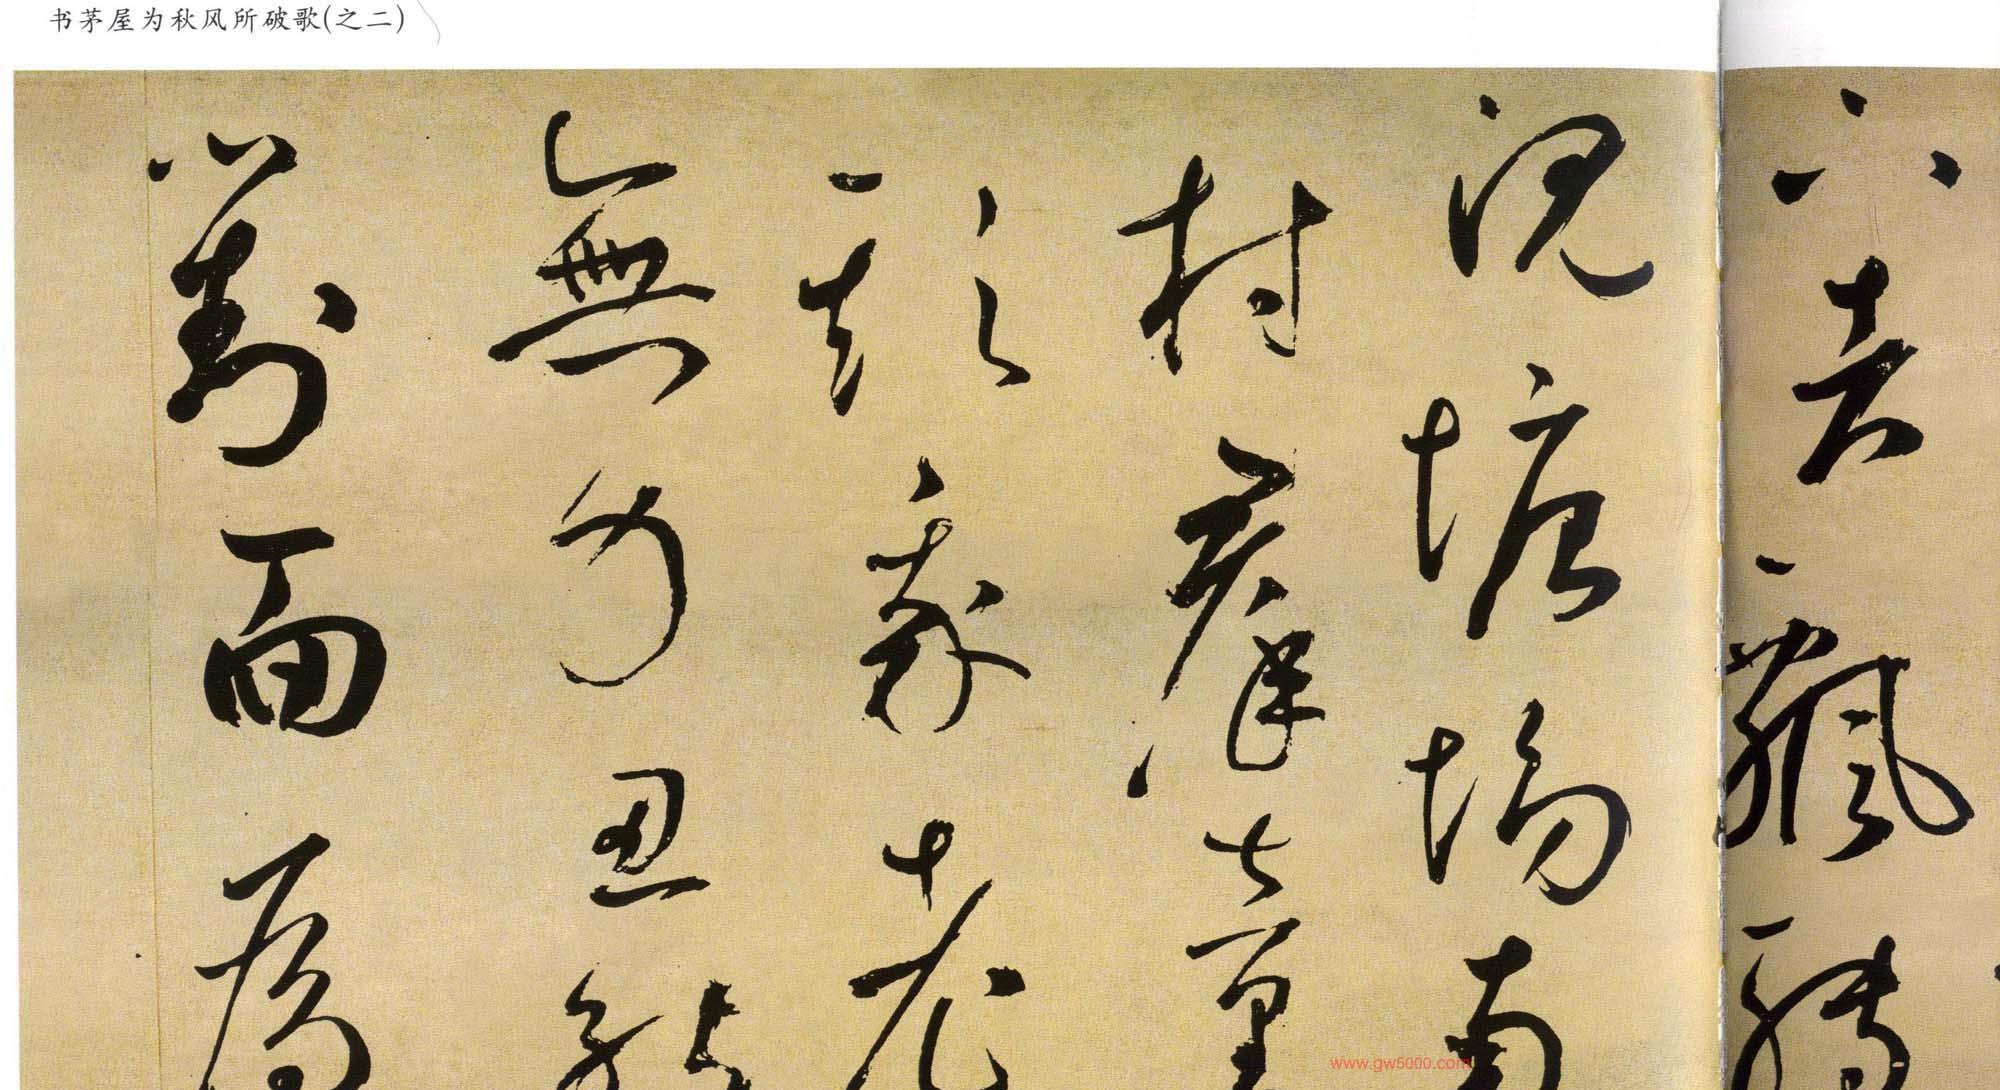 书茅屋为秋风所破歌(之二)
下者飄轉
沉塘坳南
村羣童
欺我老
無力忍能
對面為
www.gw5000.com